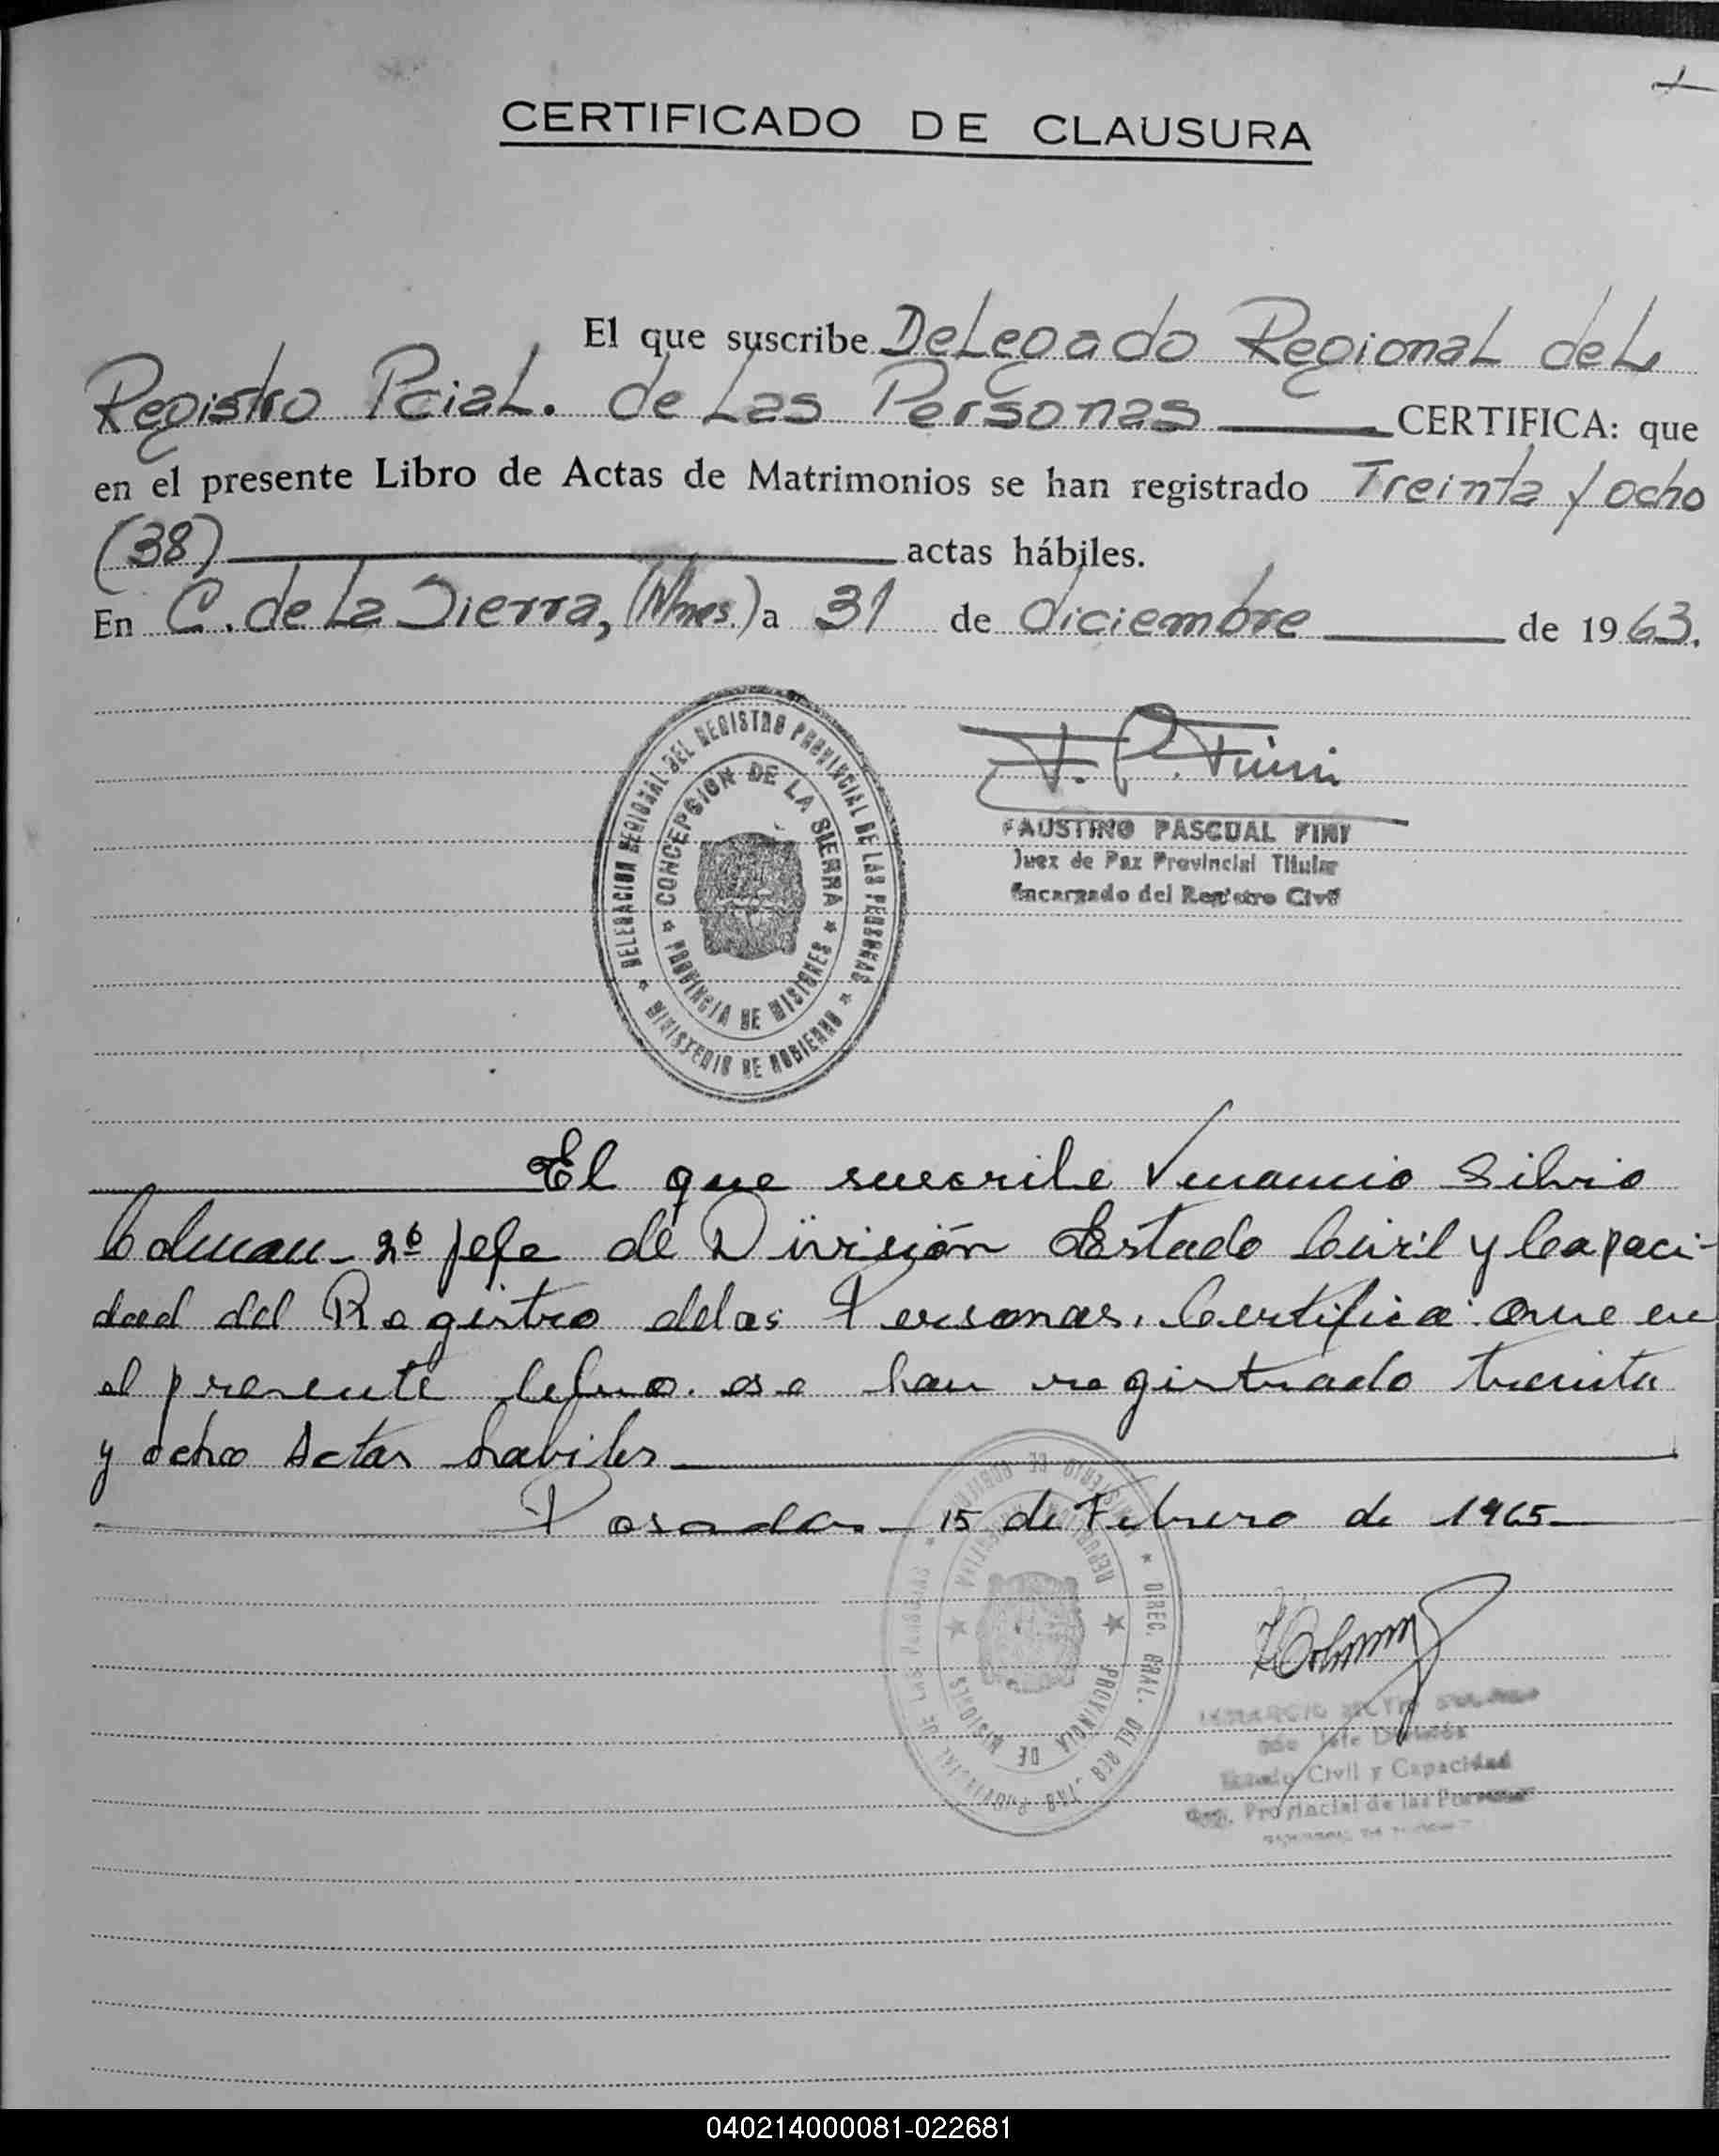 CERTIFICADO DE CLAUSURA
El que suscribe Delegado Regional del
Registro Pcial. de Las Personas CERTIFICA: que
en el presente Libro de Actas de Matrimonios se han registrado Treinta y ocho
(38) actas hábiles.
En C. de La Sierra, (Mnes.) a 31 de diciembre de 1963.
DELEGACION REGIONAL DEL REGISTRO PROVINCIAL DE LAS PERSONAS
* MINISTERIO DE GOBIERNO *
CONCEPCION DE LA SIERRA
* PROVINCIA DE MISIONES *
F. P. Fini
FAUSTINO PASCUAL FINI
Juez de Paz Provincial Titular
Encargado del Registro Civil
El que suscribe Venancio Silvio
Colman 2º Jefe de División Estado Civil y Capaci-
dad del Registro delas Personas. Certifica: Que en
el presente libro se han registrado treinta
y ocho Actas habiles
Posadas 15 de Febrero de 1965
MINISTERIO DE GOBIERNO * DIREC. GRAL. DEL REG. PROVINCIAL DE LAS PERSONAS *
REPUBLICA ARGENTINA
PROVINCIA DE MISIONES
Colman
2do Jefe División
Estado Civil y Capacidad
Reg. Provincial de las Personas
040214000081-022681